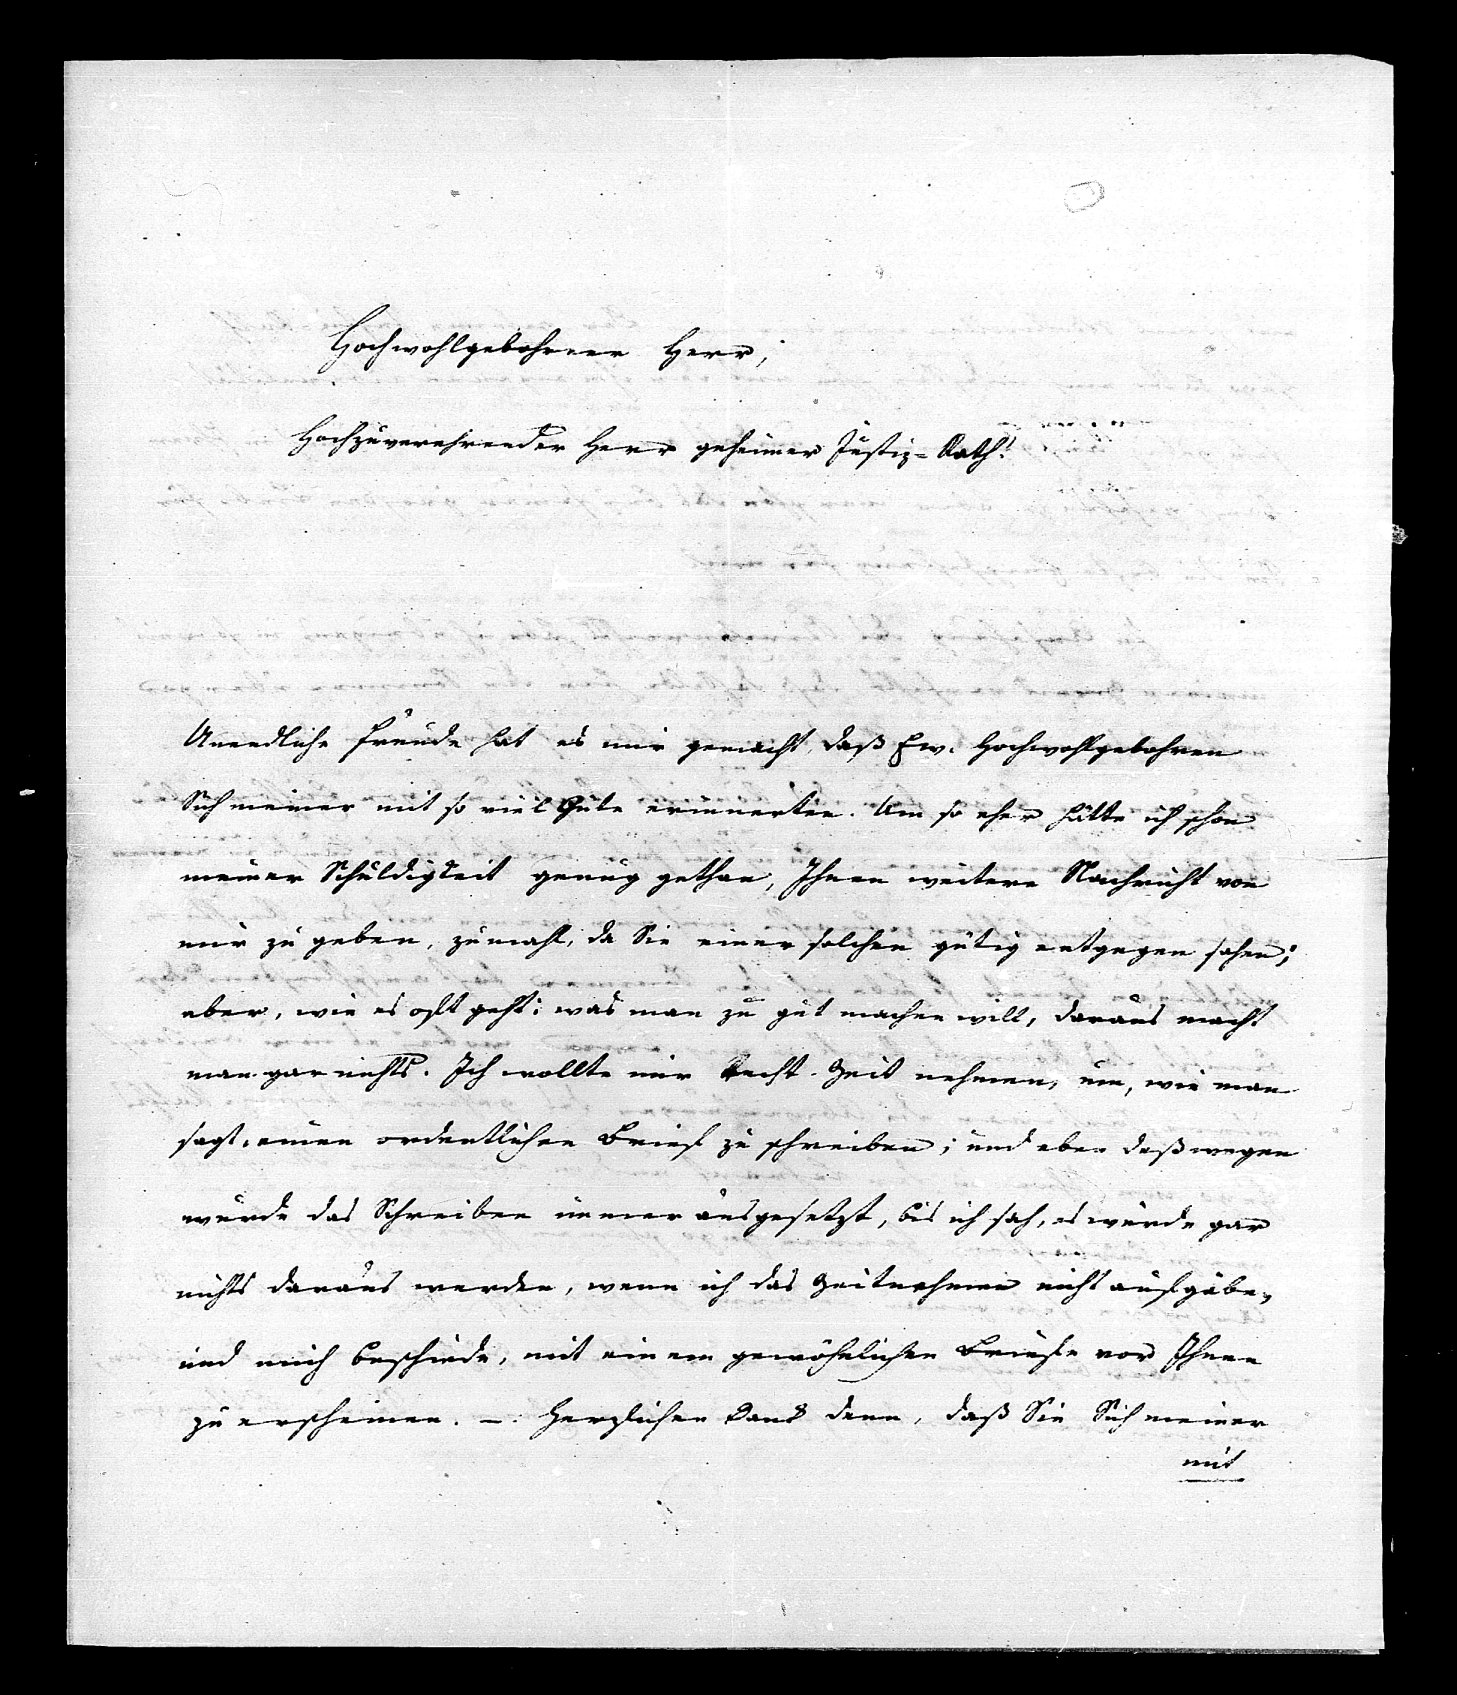 Hochwohlgebohrner Herr,
Hochzuverehrender Herr geheimer Justiz-Rath!
Unendliche Freude hat es mir gemacht, daß Ew. Hochwohlgebohren
Sich meiner mit so viel Güte erinnerten. Um so eher hätte ich schon
meiner Schuldigkeit genug gethan, Ihnen weitere Nachricht von
mir zu geben, zumahl, da Sie einer solchen gütig entgegen sahen;
aber, wie es oft geht: was man zu gut machen will, daraus macht
man gar nichts. Ich wollte mir Recht Zeit nehmen, um, wie man
sagt, einen ordentlichen Brief zu schreiben; und eben deßwegen
wurde das Schreiben immer ausgesetzt, bis ich sah, es würde gar
nichts daraus werden, wenn ich das Zeitnehmen nicht aufgäbe,
und mich beschiede, mit einem gewöhnlichen Briefe vor Ihnen
zu erscheinen. – Herzlichen Dank denn, daß Sie Sich meiner
mit